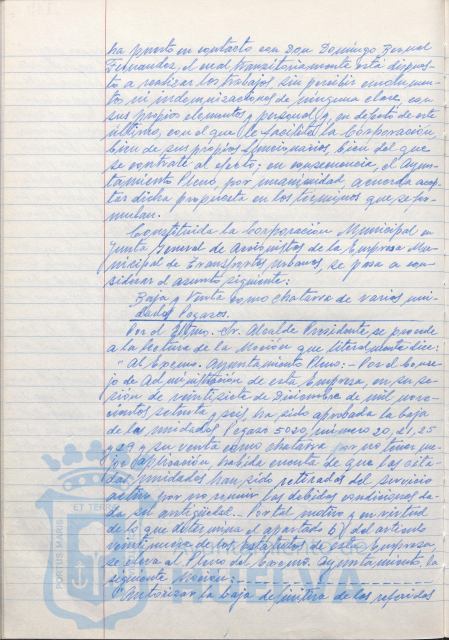 ha puesto en contacto con Don Domingo Bernal
Fernández, el cual transitoriamente está dispues-
to a realizar los trabajos sin percibir emolumen-
to, ni indemnizaciones de ninguna clase, con
sus propios elementos y personal y, en defecto de este
último, con el que le facilite la Corporación,
bien de sus propios funcionarios, bien del que
se contrate al efecto; en consecuencia, el Ayun-
tamiento Pleno, por unanimidad, acuerda acep-
tar dicha propuesta en los términos que se for-
mulan.
Constituida la Corporación Municipal en
Junta General de Accionistas de la Empresa Mu-
nicipal de Transportes Urbanos, se pasa a con-
siderar el asunto siguiente:
Baja y Venta como chatarra de varias uni-
dades Pegasos.
Por el Iltmo. Sr. Alcalde Presidente se procede
a la lectura de la Moción que literalmente dice:
"Al Excmo. Ayuntamiento Pleno: - Por el Conse-
jo de Administración de esta Empresa, en su se-
sión de veintisiete de Diciembre de mil nove-
cientos setenta y seis, ha sido aprobada la baja
de las unidades Pegaso 5020, número 20, 21, 25
y 29 y su venta como chatarra por no tener me-
jor aplicación, habida cuenta de que las cita-
das unidades han sido retiradas del servicio
activo por no reunir las debidas condiciones da-
da su antigüedad. - Por tal motivo y en virtud
de lo que determina el apartado b) del artículo
veintinueve de los Estatutos de esta Empresa,
se eleva al Pleno del Excmo. Ayuntamiento, la
siguiente Moción:
"Autorizar la baja de las referidas
PORTUS MARIS
ET TERRAE
HUELVA